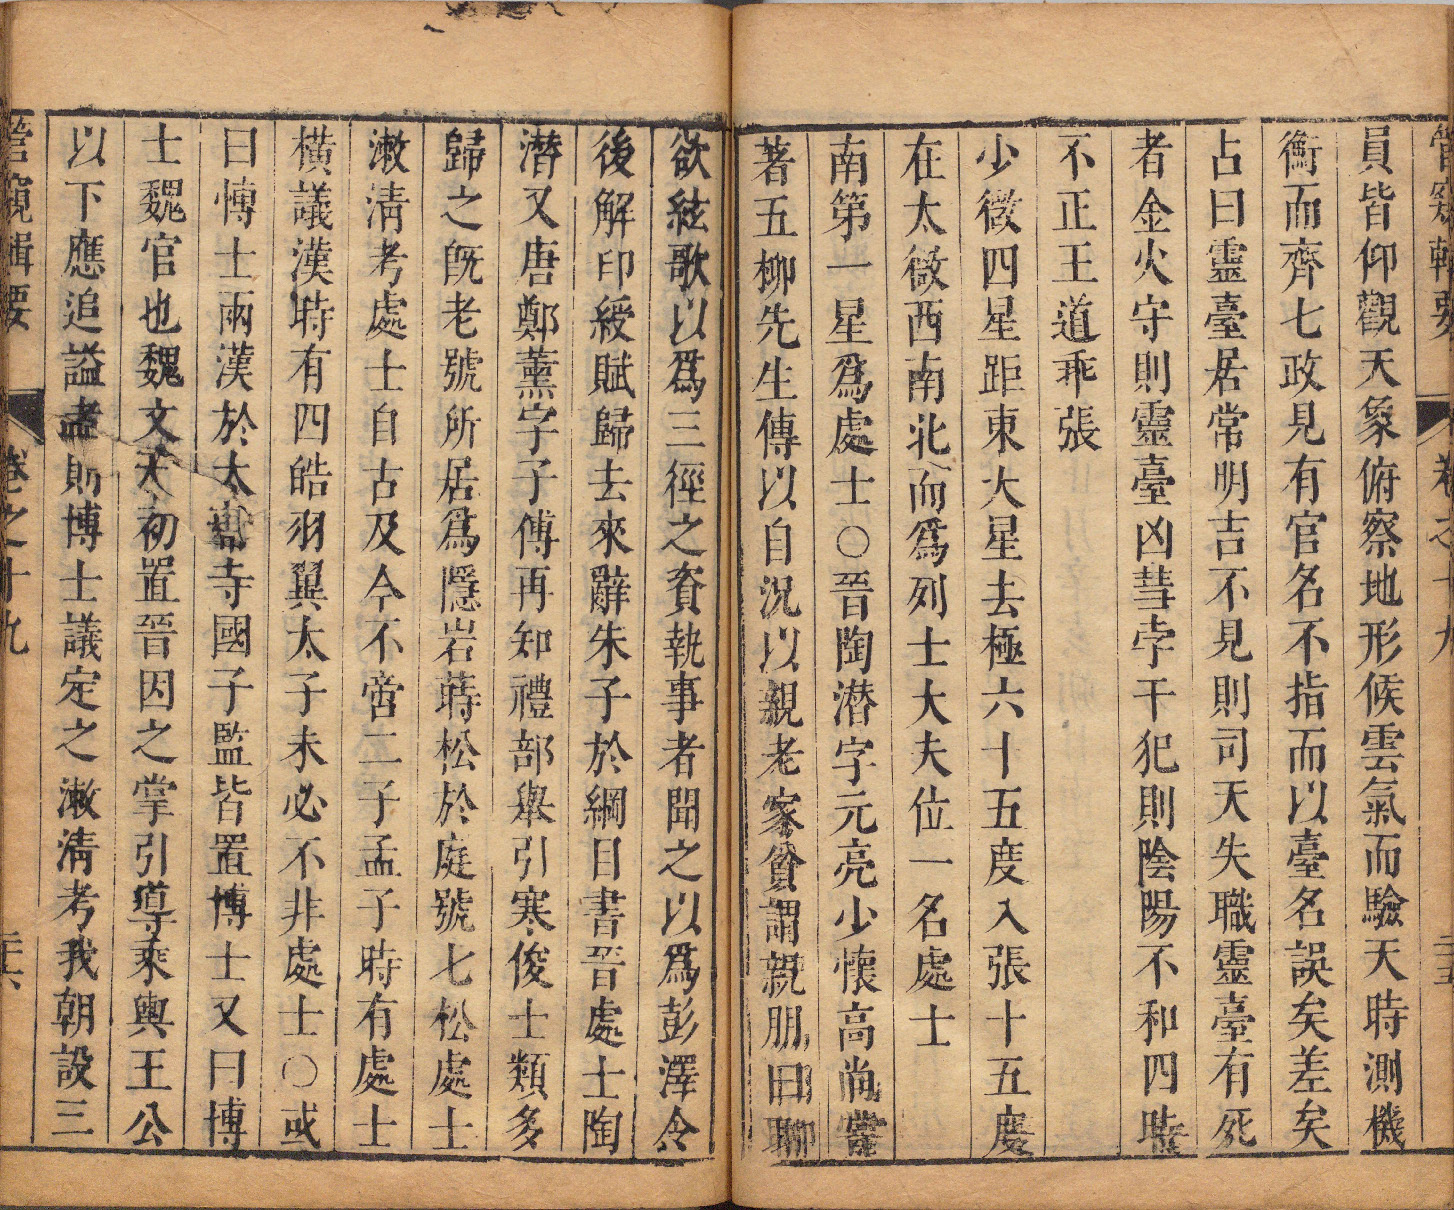 管窺輯要 卷之十九 三十五
員皆仰觀天象俯察地形候雲氣而驗天時測機
衡而齊七政見有官名不指而以臺名誤矣差矣
占曰靈臺居常明吉不見則司天失職靈臺有死
者金火守則靈臺凶彗孛干犯則陰陽不和四時
不正王道乖張
少微四星距東大星去極六十五度入張十五度
在太微西南北而爲列士大夫位一名處士
南第一星爲處士○晉陶潛字元亮少懷高尚嘗
著五柳先生傳以自況以親老家貧謂親朋曰聊
欲絃歌以爲三徑之資執事者聞之以爲彭澤令
後解印綬賦歸去來辭朱子於綱目書晉處士陶
潛又唐鄭薰字子傅再知禮部舉引寒俊士類多
歸之旣老號所居爲隱岩蒔松於庭號七松處士
漱清考處士自古及今不啻二子孟子時有處士
橫議漢時有四皓羽翼太子未必不非處士○或
曰博士兩漢於太常寺國子監皆置博士又曰博
士魏官也魏文大初置晉因之掌引導乘輿王公
以下應追謚者則博士議定之漱清考我朝設三
管窺輯要 卷之十九 三十六